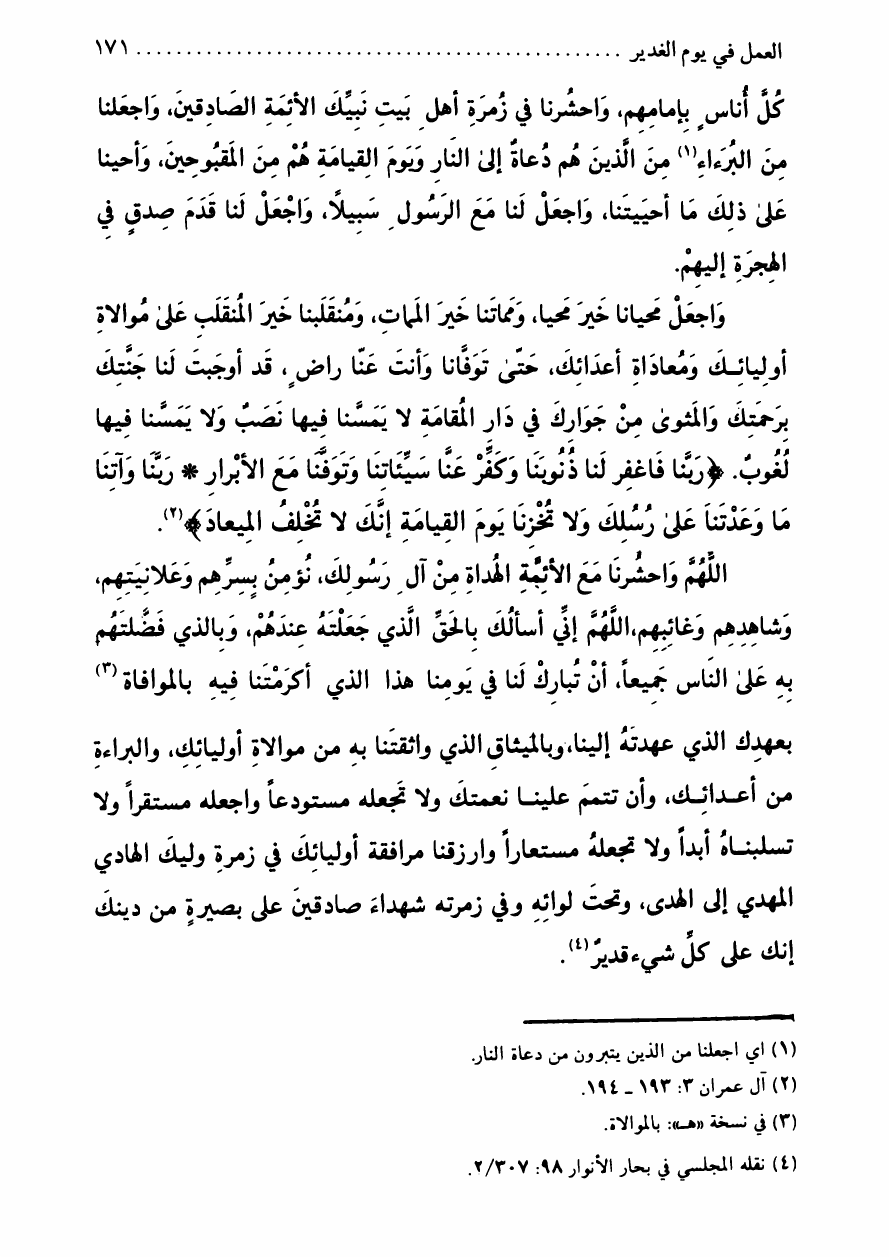 العمل في يوم الغدير ................................................ ١٧١
كُلَّ أُناسٍ بِإمامِهِم، وَاحشُرنا فِي زُمرَةِ أهلِ بَيتِ نَبِيِّكَ الأَئِمَةِ الصَادِقينَ، وَاجعَلنا
مِنَ البُرَءاءِ(١) مِنَ الَّذينَ هُم دُعاةٌ إلىٰ النَارِ وَيَومَ القِيامَةِ هُمْ مِنَ المَقبُوحِينَ، وَأحيِنا
عَلىٰ ذلِكَ مَا أحيَيتَنا، وَاجعَلْ لَنا مَعَ الرَسُولِ سَبِيلاً، وَاجْعَلْ لَنا قَدَمَ صِدقٍ فِي
الهِجرَةِ إليهِمْ.
وَاجعَلْ مَحيانا خَيرَ مَحيا، وَمَماتَنا خَيرَ المَماتِ، وَمُنقَلَبنا خَيرَ المُنقَلَبِ عَلىٰ مُوالاةِ
أولِيائِـكَ وَمُعادَاةِ أعدَائِكَ، حَتّىٰ تَوَفَّانا وَأنتَ عَنّا راضٍ، قَد أوجَبتَ لَنا جَنَّتِكَ
بِرَحمَتِكَ وَالمَثوىٰ مِنْ جَوَارِكَ في دَارِ المُقامَةِ لا يَمَسَّنا فيها نَصَبٌ وَلا يَمَسَّنا فِيها
لُغُوبٌ. ﴿رَبَّنا فَاغفِر لَنا ذُنُوبَنَا وَكَفِّرْ عَنَّا سَيِّئَاتِنَا وَتَوَفَّنَا مَعَ الأبْرارِ * رَبَّنَا وَآتِنَا
مَا وَعَدْتَنَا عَلىٰ رُسُلِكَ وَلا تُخْزِنَا يَومَ القِيامَةِ إنَّكَ لا تُخْلِفُ المِيعادَ﴾(٢).
اللَّهُمَّ وَاحشُرنَا مَعَ الأئِمَّةِ الهُداةِ مِنْ آلِ رَسُولِكَ، نُؤمِنُ بِسِرِّهِم وَعَلانِيَتِهِم،
وَشاهِدِهِم وَغائِبِهِم،اللَّهُمَّ إنِّي أسألُكَ بِالحَقِّ الَّذي جَعَلْتَهُ عِندَهُمْ، وَبِالذي فَضَّلتَهُم
بِهِ عَلىٰ النَاسِ جَمِيعاً، أنْ تُبارِكْ لَنا في يَومِنا هذا الذي أكرَمْتَنا فِيهِ بالموافاة(٣)
بعهدِك الذي عهدتَهُ إلينا،وبالميثاقِ الذي واثقتَنا بِه من موالاةِ أوليائِكِ، والبراءةِ
من أعـدائِـك، وأن تتممَ علينـا نعمتكَ ولا تَجعله مستودعاً واجعله مستقراً ولا
تسلبنـاهُ أبداً ولا تجعلهُ مستعاراً وارزقنا مرافقة أوليائِكَ في زمرةِ وليكَ الهادي
المهدي إلى الهدى، وتحتَ لوائِهِ وفي زمرته شهداءَ صادقينَ على بصيرةٍ من دينكَ
إنك على كلِّ شيء قديرٌ(٤).
(١) اي اجعلنا من الذين يتبرون من دعاة النار.
(٢) آل عمران ٣: ١٩٣ ـ ١٩٤.
(٣) في نسخة «هـ»: بالموالاة.
(٤) نقله المجلسي في بحار الأنوار ٩٨: ٢/٣٠٧.